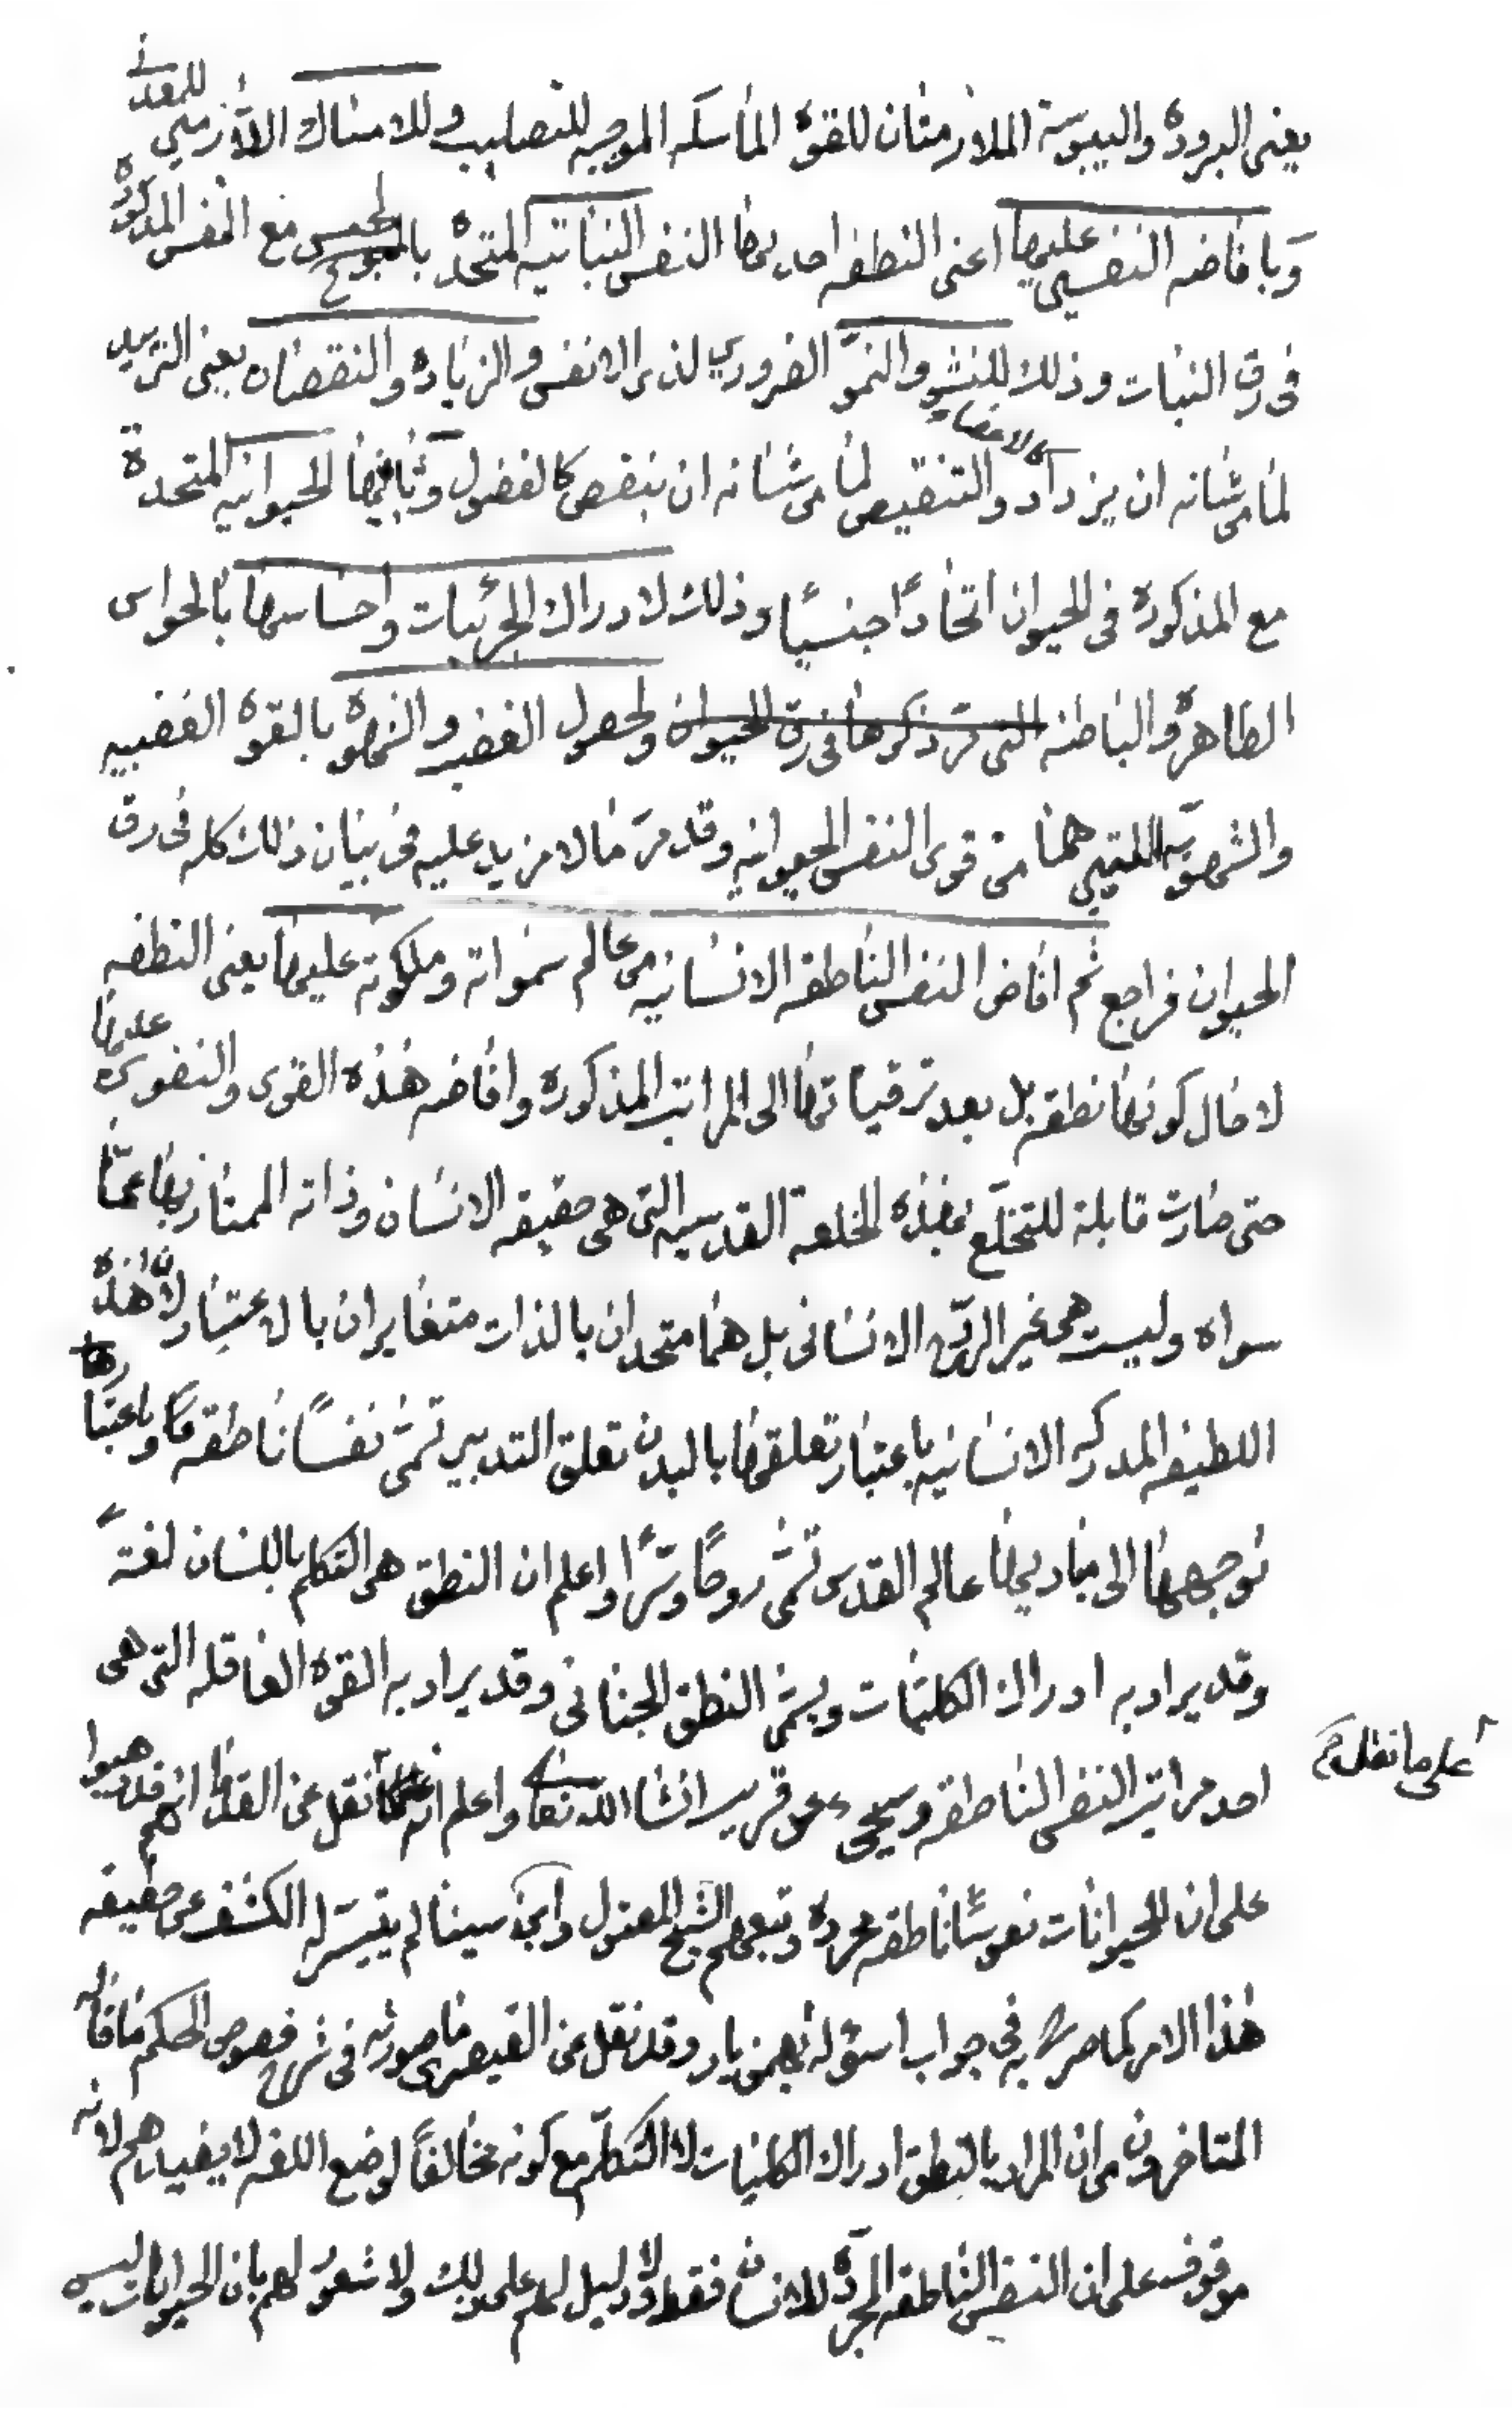 يعنى البرودة واليبوسة الملازمتان للقوة الماسكه الموجبه للتصليب وللامساك اللازمين للمعدنى
وبافاضه النفسين عليها اعنى النطفه احديهما النفس النباتيه المتحدة بالجنس مع النفس المذكورة
فى رق النبات وذلك للنشو والنمو الضروري لذى الانفس والزيادة والنقصان يعنى التزييد
لما من شانه ان يزداد كالاعضاء والتنقيص لما من شانه ان ينقص كالفضول وثانيهما الحيوانيه المتحدة
مع المذكورة فى الحيوان اتحادًا جنسيًا وذلك لادراك الجزئيات واحساسها بالحواس
الظاهرة والباطنه التى مرّ ذكرها فى رق الحيوان ولحصول الغضب والشهوة بالقوة الغضبيه
والشهويّه اللتين هما من قوى النفس الحيوانيه وقد مرّ ما لا مزيد عليه فى بيان ذلك كله فى رق
الحيوان فراجع ثم افاض النفس الناطقه الانسانيه من عالم سمواته وملكوته عليها يعنى النطفه
لا حال كونها نطفة بل بعد ترقياتها الى المراتب المذكورة وافاضه هذه القوى والنفوس عليها
حتى صارت قابلة للتخلّع بهذه الخلعة القدسيه التى هى حقيقه الانسان وذاته الممتاز بها عمّا
سواه وليست هى غير الروح الانسانى بل هما متحدان بالذات متغايران بالاعتبار لانّ هذه
اللطيفه المدركه الانسانيه باعتبار تعلقها بالبدن تعلق التدبير تسمّى نفسًا ناطقه وباعتبار
توجهها الى مباديها عالم القدس تسمّى روحًا وسّرًا واعلم ان النطق هى التكلم باللسان لغةً
وقد يراد به ادراك الكليات ويسمّى النطق الجنانى وقد يراد به القوة العاقله التى هى
احد مراتب النفس الناطقه وسيجىء عن قريب انشاالله تعا واعلم انه على ما نقل عن القدما انهم قد ذهبوا
على ما نقل
على ان للحيوانات نفوسًا ناطقه مجردة وتبعهم الشيخ المقتول وابن سينا لم يتيسّر له الكشف عن حقيقه
هذا الامر كما صرح به فى جواب اسؤله بهمنيار وقد نقل عن القيصرى ما صورته فى شرح فصوص الحكم ما قاله
المتاخرون من ان المراد بالنطق ادراك الكليات لا التكلّم مع كونه مخالفًا لوضع اللغه لا يفيدهم لانه
موقوف على ان النفس الناطقه المجردة للانسان فقط ولا دليل لهم على ذلك ولا شعور لهم بان الحيوانات ليس